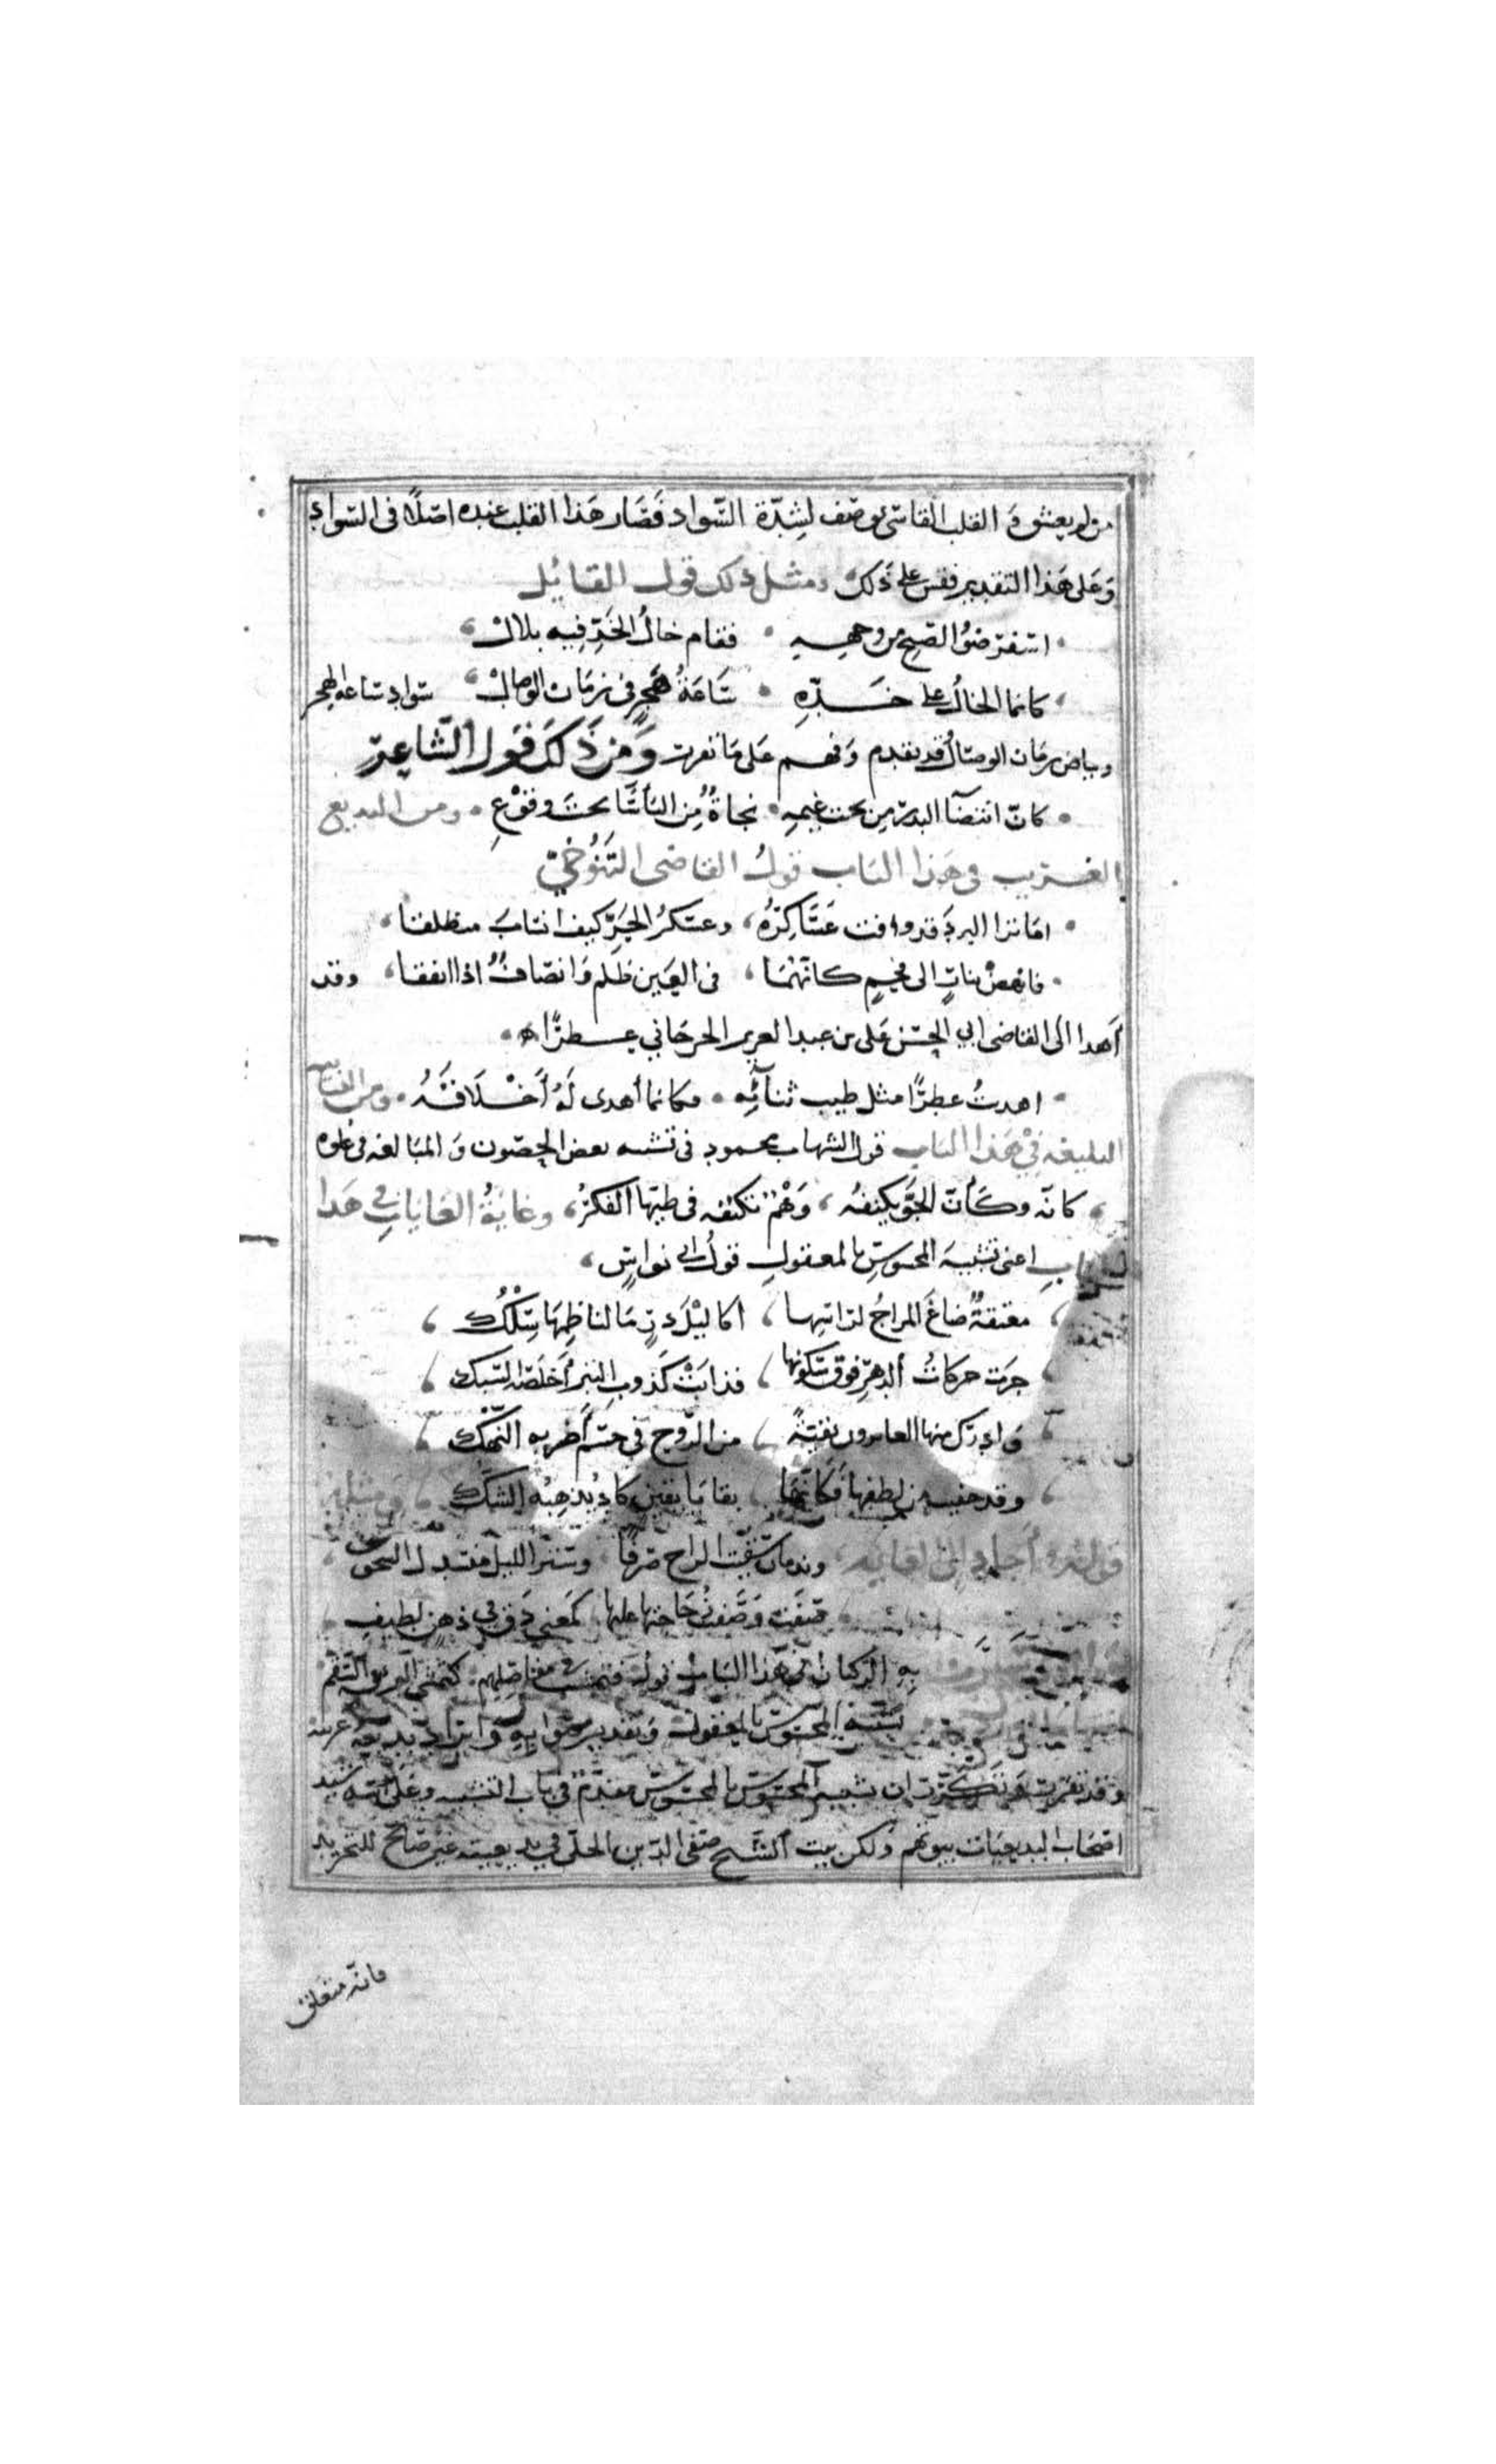 من لم يعشق وَ القلب القاسى يوصف لِشِدّة السّواد فَصَار هَذا القلب عنده اصْلاً فى السّوادِ
وَعَلى هَذا التقدير فقس على ذَلك ومثل ذلك قول القائِل
اسفر ضوُ الصّبح من وجهِـهِ • فقام خالُ الخَدِّ فِيه بلالْ
كانما الخالُ على خَـدِّهِ • سَاعَةُ هَجرٍ فى زمَان الوصالْ سَواد ساعه الهجر
وبياض زمَان الوصَال قد تقدم وَفهم عَلى مَا تقرر وَمِن ذَلكَ قَول الشّاعِر
كانّ انتضآ البدر مِن تحت غيمِهِ • نجاةٌ مِن البَأسَا تحتَ وقوْعِ • ومن البديع
الغريب فى هَذا البَاب قولُ القاضى التَنُوْخيّ
امَا ترَا البردَ قد وافت عَسَاكِرُهُ وعسكرُ الحَرّ كيف انسَابَ منطلقا
فانهضْ بنارٍ الى فحمٍ كانّهُمَا فى العَين ظلم وَانصَافٌ اذا اتفقا وقد
أهدا الى القاضى ابي الحسَن عَلى بن عبد العزيز الجرجَاني عـطرًا
اهديتُ عطرًا مثل طيب ثنآئِه • فكانما أهدى لَهُ أَخْلَاقَهُ • ومن التشابيه
البليغه فِيْ هَذا البَاب قول الشهاب محمود فى تشبيه بعض الحصون وَ المبَالغه فى علوه
كانّه وكَأنّ الجَوّ يكنفُه وَهْمٌ تكنفه فى طيّها الفكرُ وغايَةُ الغايَاتِ في هَذا
البابِ اعنى تشبيهَ المحسوسِ بالمعقولِ قولُ ابى نواسٍ
معتقةٌ صَاغَ المزاجُ لرَاسِها اكاليْلَ دُرّ مَا لناظِمِهَا سِلْكُ
جرَت حركاتُ الدهرِ فوقَ سكونها فذابَتْ كَذَوبِ التبرِ أَخلَصَه السّبك
وَادرك منها الغابرون بقيّةً من الرّوح فى جسْمٍ أضر به النّهْك
وقد خفيت من لطفها فَكَانّهَا بقايَا يقينٍ كادَ يُذهِبُه الشكّ وَمثله
قولهُ أجاد إلى الغايه وندمان سَقَيتُ الراح صِرفًا وسترُ الليل منسدل السجوف
صَفَت وَصَفَتْ زُجَاجَتها عَليها كمَعنىً دَق فى ذهنٍ لطيفِ
بهِ الركبان فى هَذا البَابِ قولُه فتمشت فى مفَاصِلهم كتمشّي البُرءِ فى السّقَم
تشبيه المحسوس بالمعقول وَتقدير وَايراد بديعه
وقد تقررَ وَتَكَرّرَ ان تشبيه المحسوس بالمحسوس مقدّمٌ فى بَاب التشبيه وعَلى
اصحَاب البديعيّات بيوتهم وَلكن بيت الشّيخ صَفى الدّين الحلّى في بديعيته غيْر صَالح للتجريد
فانّه متعلق